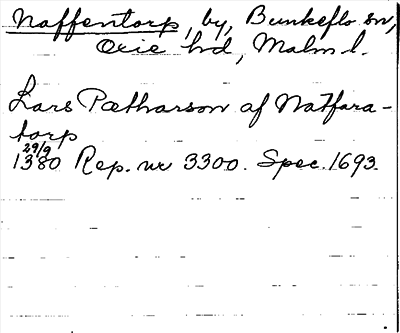 Naffentorp, by, Bunkeflo sn,
Oxie hd, Malm. l.
Lars Pætharson af Natfara-
torp
29/9
1380 Rep. nr 3300. Spec. 1693.